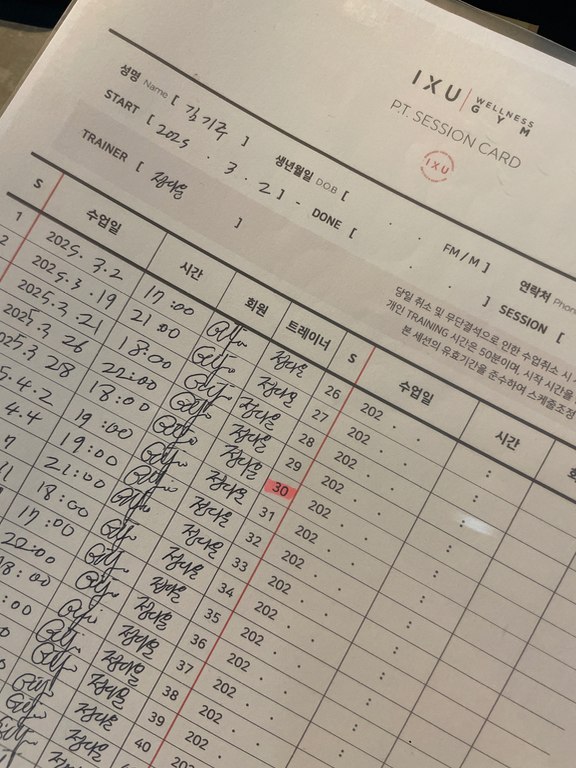 IXU WELLNESS GYM
P.T. SESSION CARD
IXU
성명 Name [ 김기주 ] 생년월일 D.O.B [ . . FM / M ] 연락처 Phon
START [ 2025 . 3 . 2 ] - DONE [ . . ] SESSION [
TRAINER [ 정다운 ]
당일 취소 및 무단결석으로 인한 수업취소 시
개인 TRAINING 시간은 50분이며, 시작 시간을
본 세션의 유효기간을 준수하여 스케줄조정
S 수업일 시간 회원 트레이너 S 수업일 시간 회
1 2025. 3. 2 17:00 정다운 26 202 . . :
2 2025.3.19 21:00 정다운 27 202 . . :
2025.3.21 18:00 정다운 28 202 . . :
2025.3.26 22:00 정다운 29 202 . . :
025.3.28 18:00 정다운 30 202 . . :
5.4.2 19:00 정다운 31 202 . . :
4.4 19:00 정다운 32 202 . . :
21:00 정다운 33 202 . . :
18:00 정다운 34 202 . . :
17:00 정다운 35 202 . . :
22:00 정다운 36 202 . . :
18:00 정다운 37 202 . . :
:00 정다운 38 202 . . :
정다운 39 202 . .
정다운 40 202